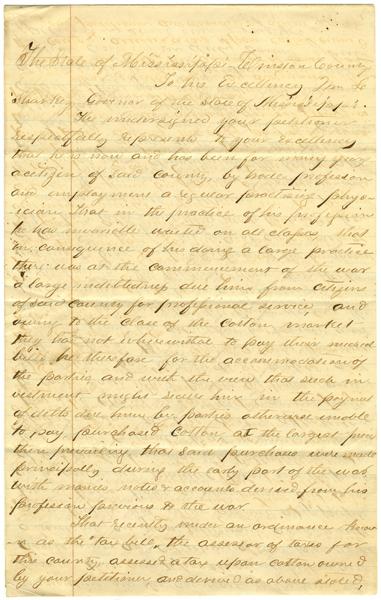 The State of Mississippi Winston County
To his Excellency Wm L
Sharkey Governor of the State of Mississippi
The undersigned your petitioner
respectfully represents to your Excellency
that he is now and has been for many years
a citizen of said County, by trade profession
and employment a regular practising physi-
-cian that in the practice of his profession
he has invariably waited on all classes that
in consequence of his doing a large practice
there was at the commencement of the war
a large indebtedness due him from citizens
of said County for professional service, and
owing to the close of the Cotton market
they had not wherewithal to pay their medical
bills he therefore for the accommodation of
the parties and with the view that such in
vestment might secure him in the payment
of debts due him by parties otherwise unable
to pay purchased Cotton at the largest price
then prevailing that said purchases were made
principally during the early part of the war
with monies notes & accounts derived from his
profession previous to the war
That recently under an ordinance know
-n as the "tax bill" the assessor of taxes for
this county, assessed a tax upon cotton owned
by your petitioner and derived as above stated,